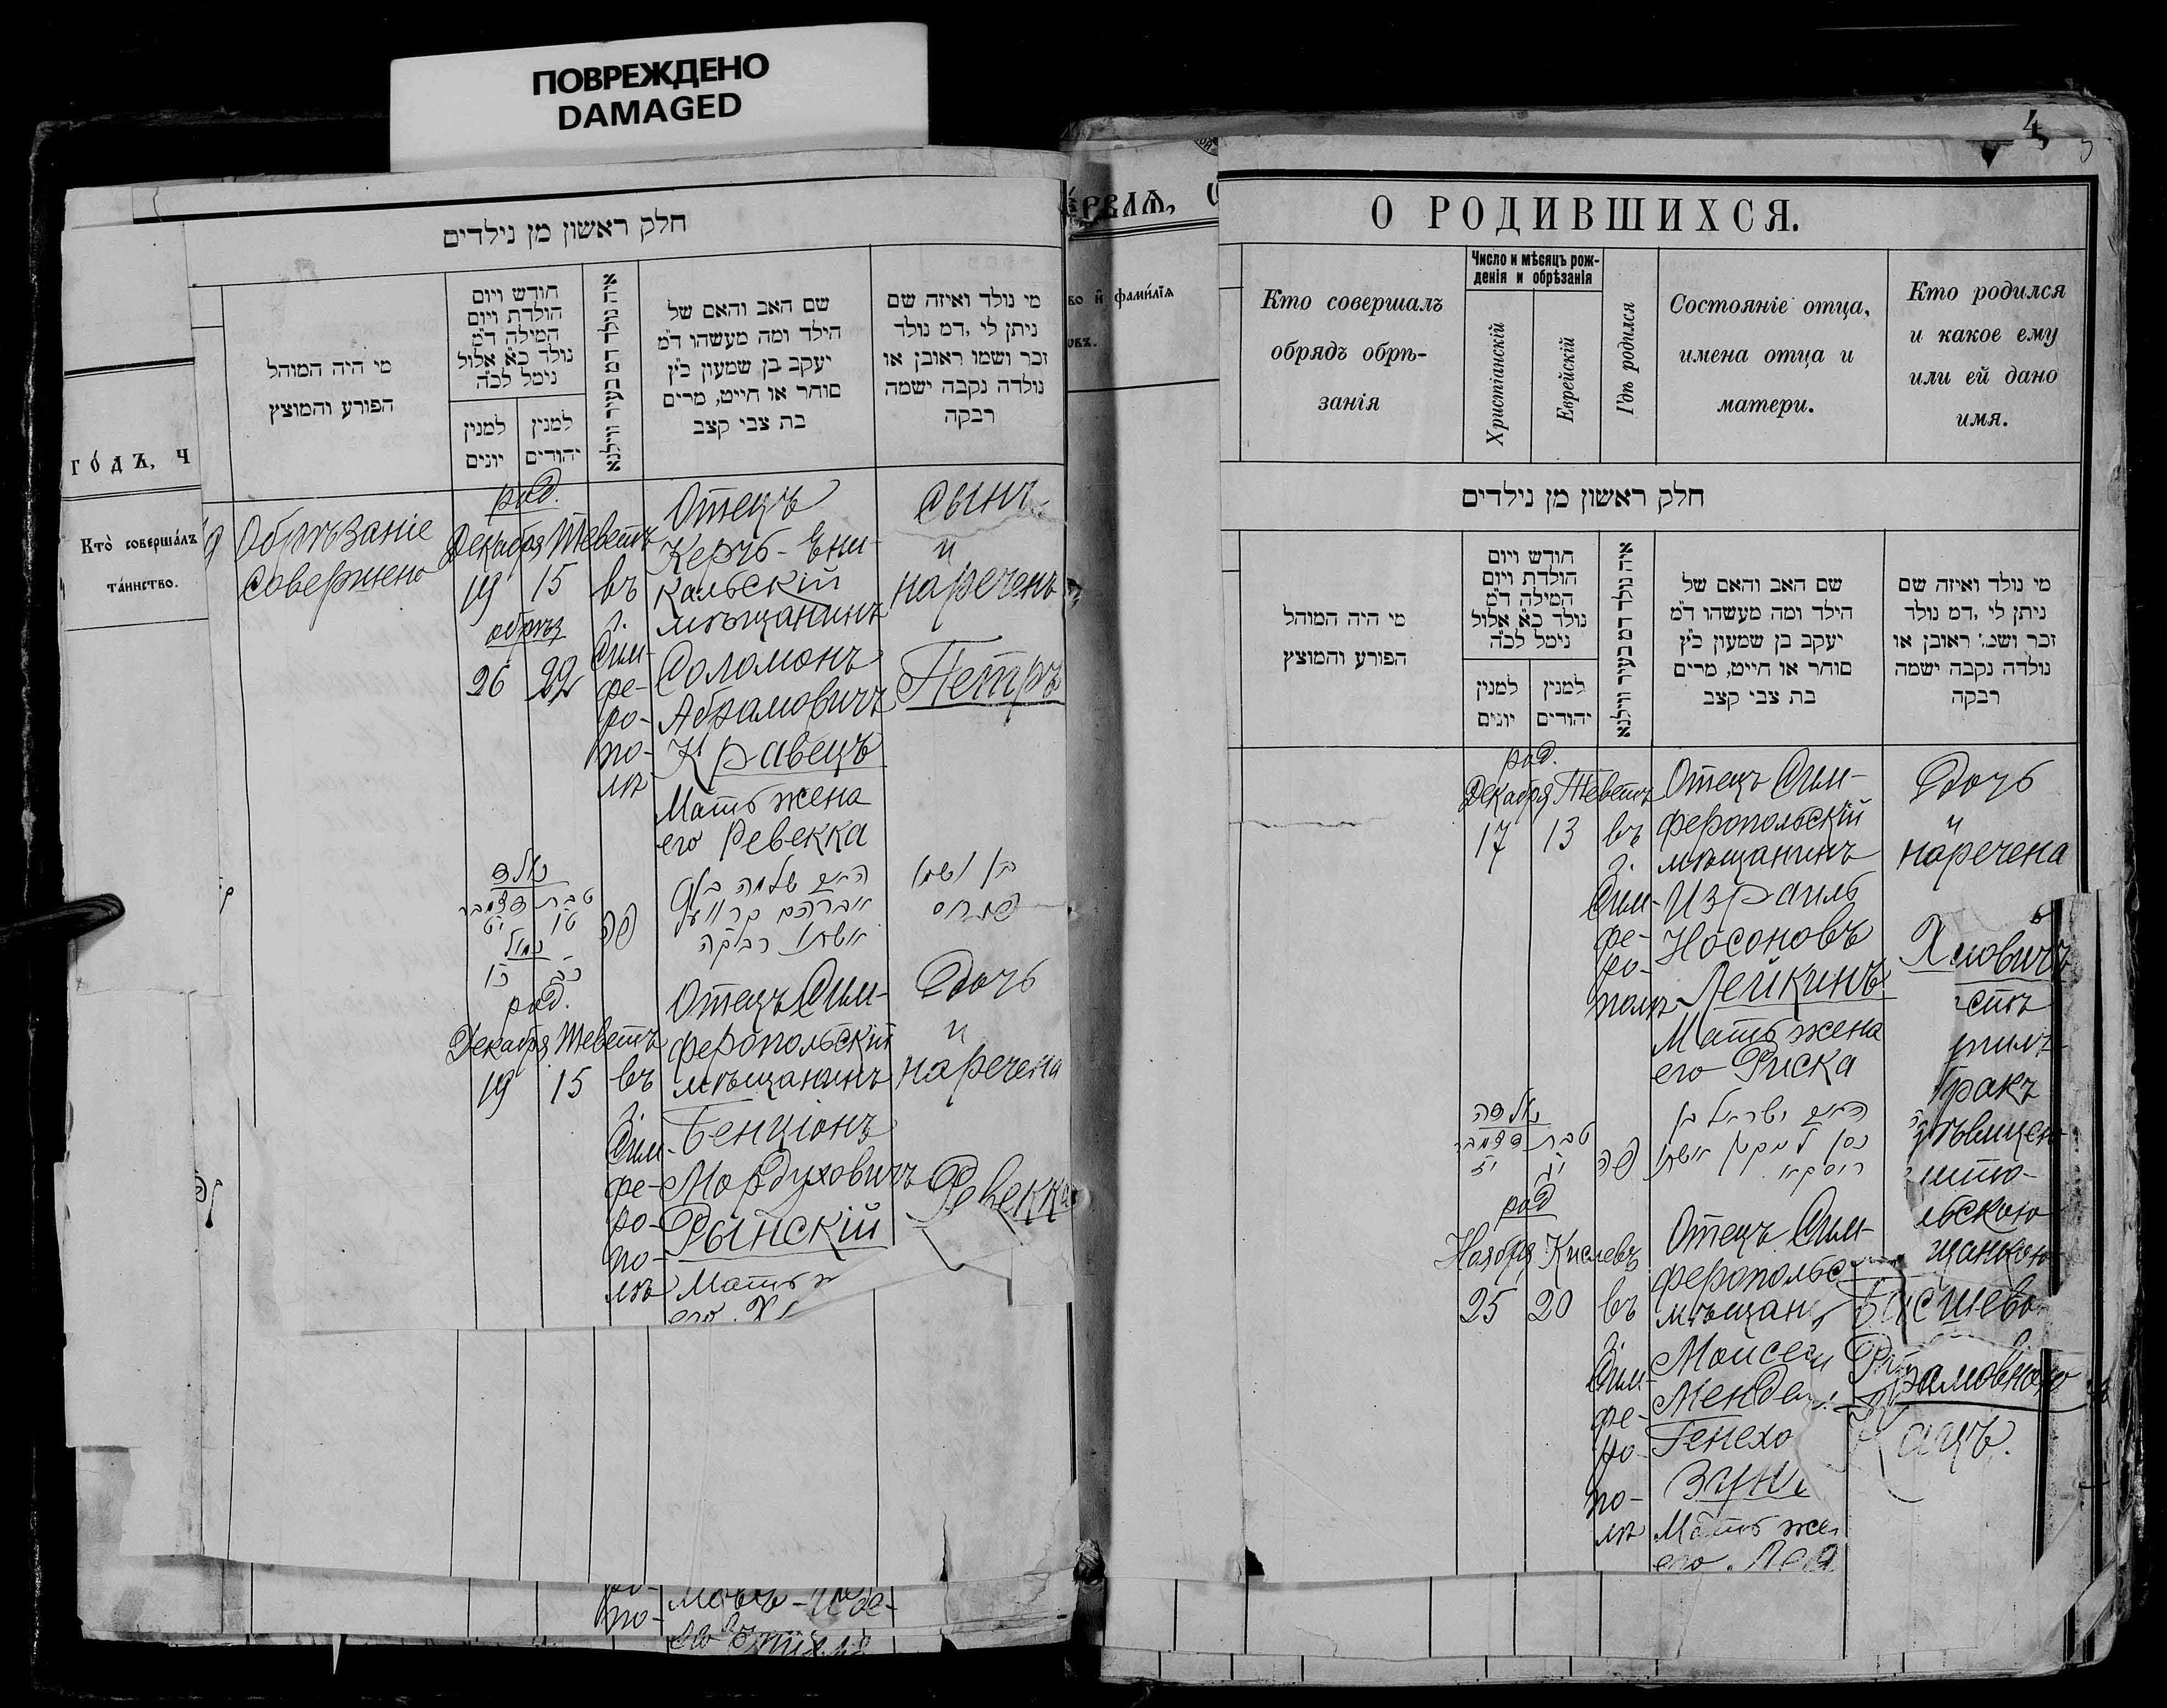 ПОВРЕЖДЕНО
DAMAGED
חלק ראשון מן נילדים
מי היה המוהל
הפורע והמוצץ
חודש ויום
הולדת ויום
המילה ד״מ
נולד כ״א אלול
נימל לכ״ה
למנין
יונים
למנין
יהודים
איה נולד דמ בעיר ווילנא
שם האב והאם של
הילד ומה מעשהו ד״מ
יעקב בן שמעון כ״ץ
סוחר או חייט, מרים
בת צבי קצב
מי נולד ואיזה שם
ניתן לי, דמ נולד
זכר ושמו ראובן או
נולדה נקבה ישמה
רבקה
ГО́ДЪ, Ч
Кто̀ совершáлъ
тáинство.
Обрѣзаніе
совершено
род.
Декабря Теветъ
19 15
обрѣз
26 22
въ
г.
Сим-
фе-
ро-
по-
лѣ
Отецъ
Керчь-Ени-
кальскій
мѣщанинъ
Соломонъ
Абрамовичъ
Кравецъ
Мать жена
его Ревекка
Сынъ
и
нареченъ
Петръ
נולד
טבת דצמבר
טו יט
נמול
כב כו
פה
האיש שלמה בן
אברהם קרוועץ
אשתו רבקה
בן ושמו
род.
Декабря Теветъ
19 15
въ
г.
Сим-
фе-
ро-
по-
лѣ
Отецъ Сим-
феропольскій
мѣщанинъ
Бенціонъ
Мордуховичъ
Рынскій
Мать
его
Дочь
и
наречена
Ревекка
по-
РВАѦ,
фами́лїѧ
4
О РОДИВШИХСЯ.
Кто совершалъ
обрядъ обрѣ-
занія
Число и мѣсяцъ рож-
денія и обрѣзанія
Христіанскій
Еврейскій
Гдѣ родился
Состояніе отца,
имена отца и
матери.
Кто родился
и какое ему
или ей дано
имя.
חלק ראשון מן נילדים
מי היה המוהל
הפורע והמוצץ
חודש ויום
הולדת ויום
המילה ד״מ
נולד כ״א אלול
נימל לכ״ה
למנין
יונים
למנין
יהודים
איה נולד דמ בעיר ווילנא
שם האב והאם של
הילד ומה מעשהו ד״מ
יעקב בן שמעון כ״ץ
סוחר או חייט, מרים
בת צבי קצב
מי נולד ואיזה שם
ניתן לי, דמ נולד
זכר ושמ: ראובן או
נולדה נקבה ישמה
רבקה
род.
Декабря Теветъ
17 13
въ
г.
Сим-
фе-
ро-
полѣ
Отецъ Сим-
феропольскій
мѣщанинъ
Израиль
Носоновъ
Лейкинъ
Мать жена
его Риска
Дочь
и
наречена
נולדה
טבת דצמבר
יג יז
פה
האיש ישראל בן
נסן לייקין אשתו
ריסקא
род
Ноября Кислевъ
25 20
въ
г.
Сим-
фе-
ро-
по-
лѣ
Отецъ Сим-
феропольс
мѣщан
Моисей
Мендел
Генехо
Зун
Мать же
его Лея
бракъ
льскою
щанкою
рамовною
ацъ.